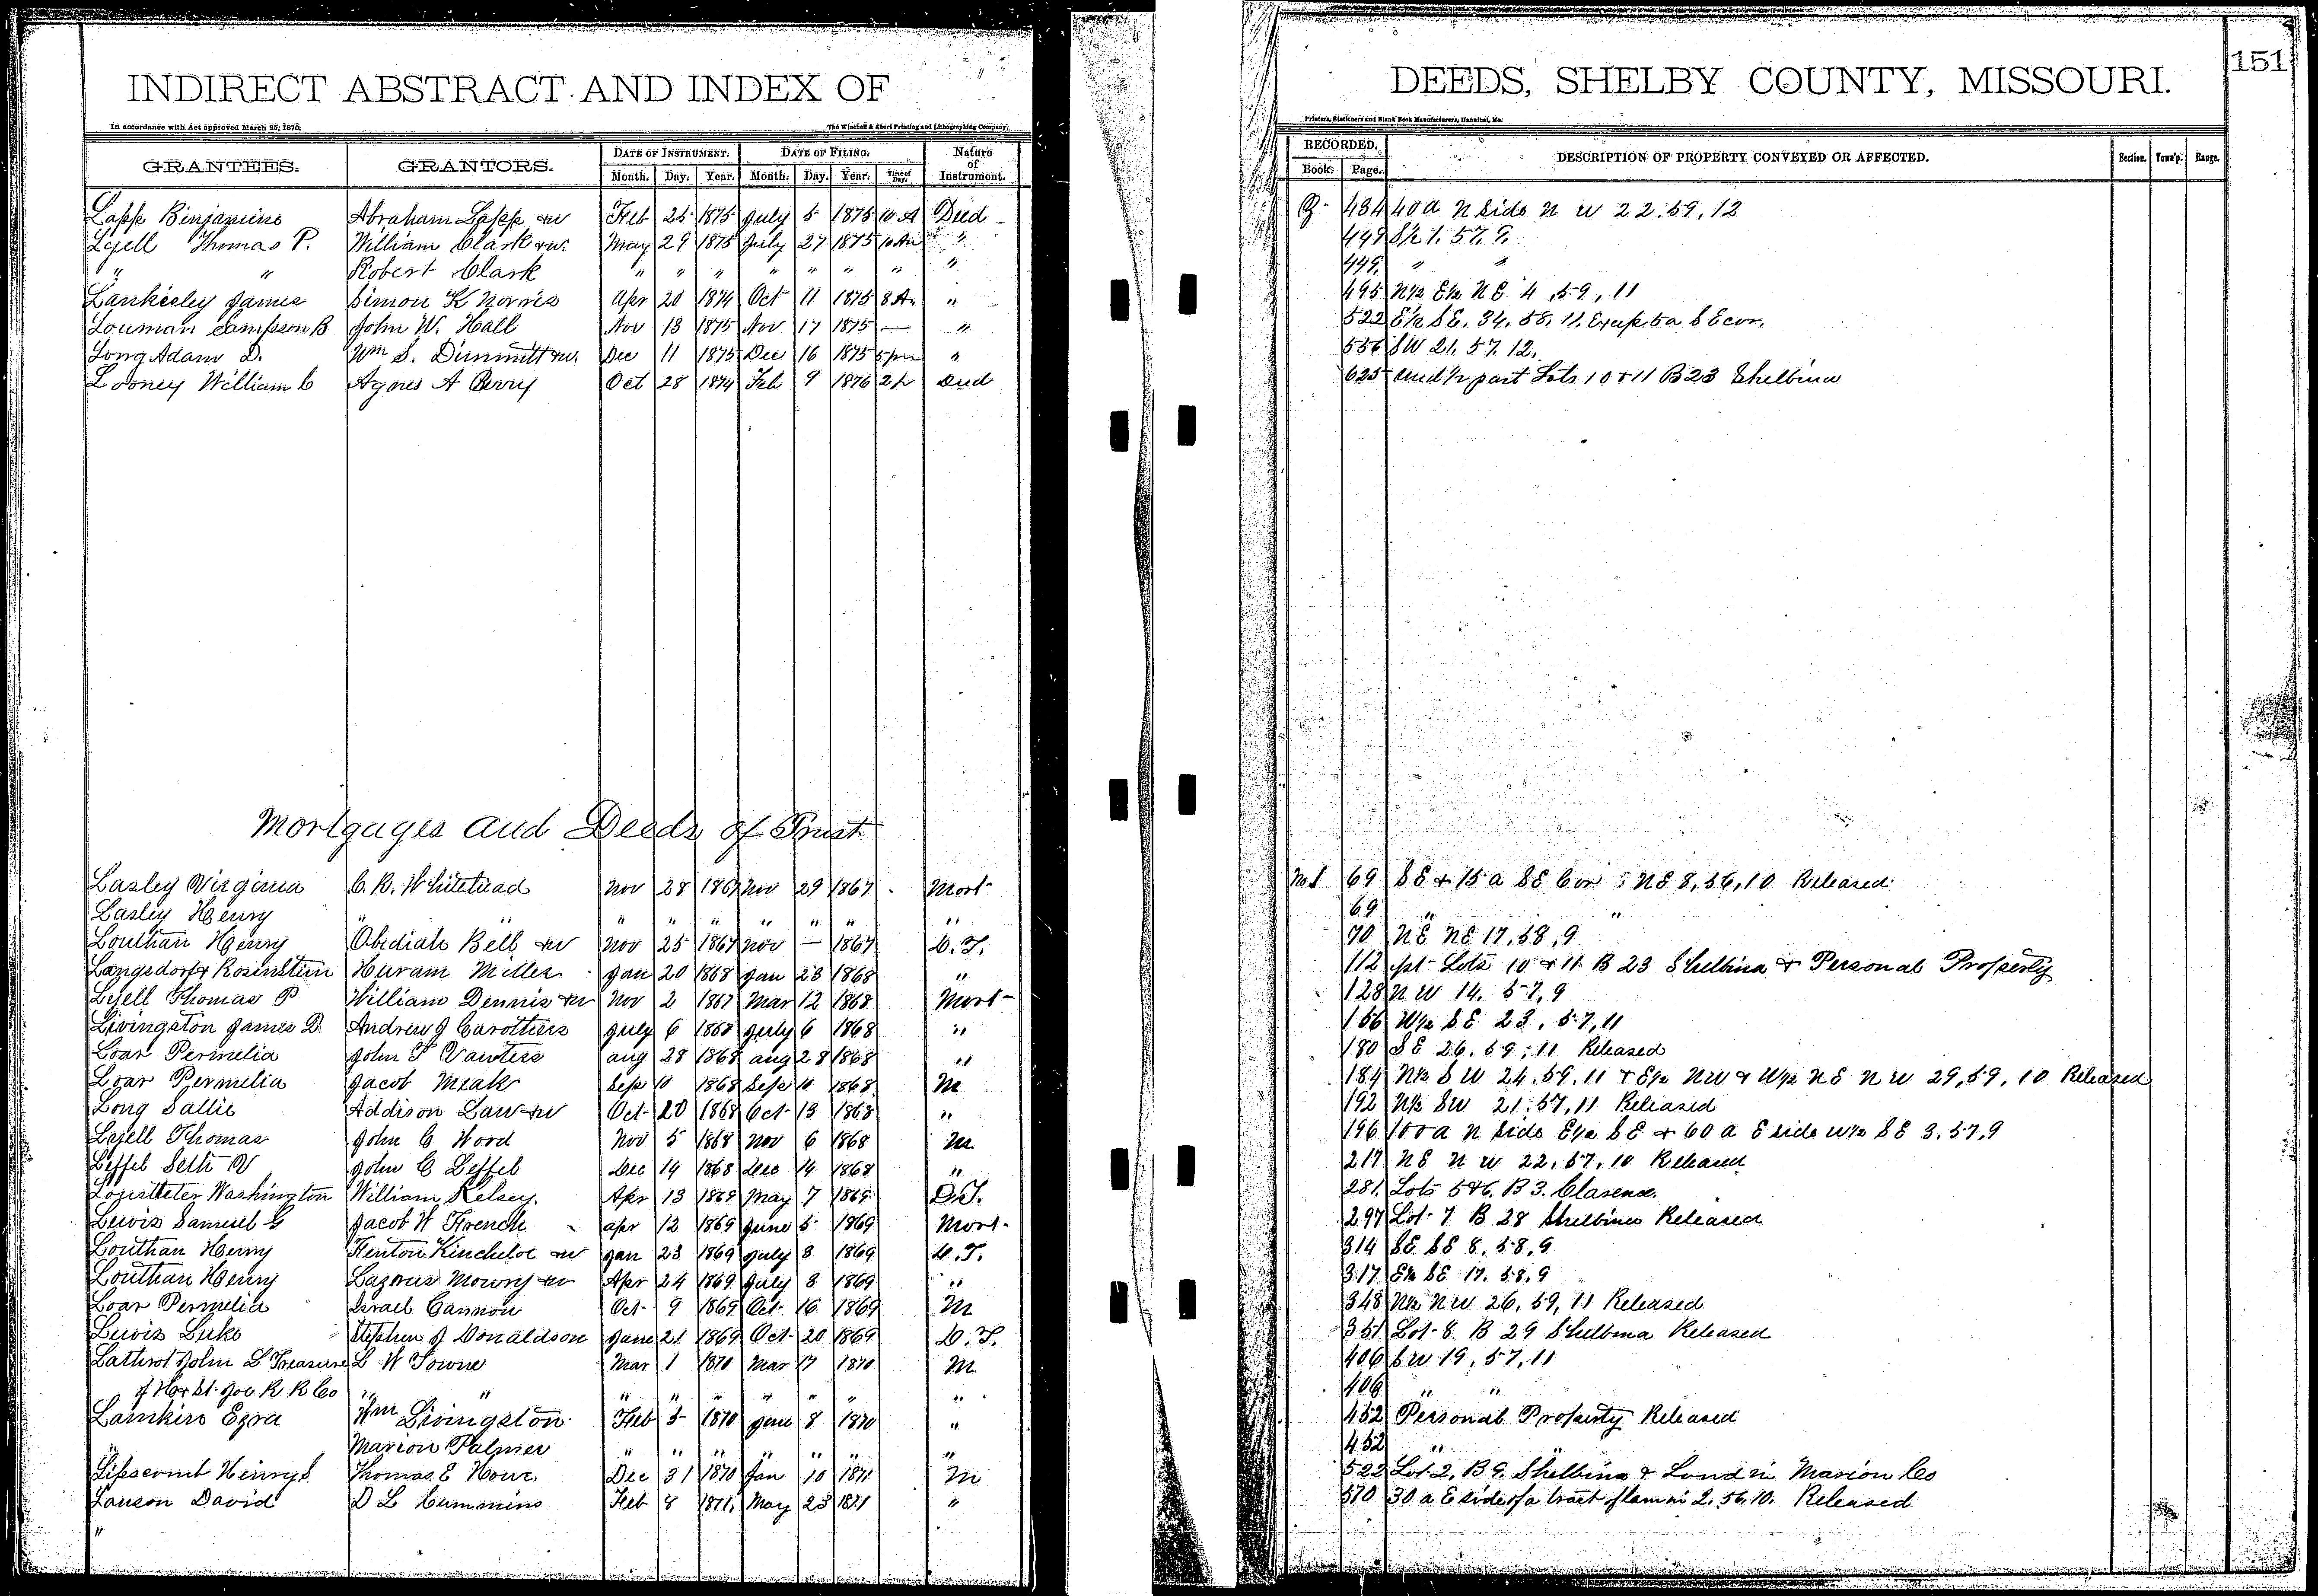 INDIRECT ABSTRACT AND INDEX OF
DEEDS, SHELBY COUNTY, MISSOURI.
151
In accordance with Act approved March 25, 1870.
The Winchell & Ebert Printing and Lithographing Company,
Printers, Stationers and Blank Book Manufacturers, Hannibal, Mo.
GRANTEES. GRANTORS. DATE OF INSTRUMENT. DATE OF FILING. Nature of Instrument. RECORDED. DESCRIPTION OF PROPERTY CONVEYED OR AFFECTED. Section. Town'p. Range.
Month. Day. Year. Month. Day. Year. Time of Day. Book. Page.
Lapp Binjamine Abraham Lapp &w Feb 25 1875 July 5 1875 10 A Deed 434 40 a N Side N W 22.59,12
Lyell Thomas P. William Clark &w. May 29 1875 July 27 1875 10 Am " 449 S½ 1. 57. 9.
" " Robert Clark " " " " " " " " 449. " "
Lankeeley James Simon K Norris Apr 20 1874 Oct 11 1875 8 A. " 495 N½ E½ N E 4, 59, 11
Louman Sampson B John W. Hall Nov 13 1875 Nov 17 1875 — " 522 E½ S E. 34. 58. 11. Except 5 a S E cor.
Long Adam D. Wm S. Dimmitt &w. Dec 11 1875 Dec 16 1875 5 pm " 556 S W 21. 57. 12.
Looney William C Agnes A Berry Oct 28 1874 Feb 9 1876 2 p Deed 625 Und ½ part Lots 10 & 11 B 23 Shelbina
Mortgages and Deeds of Trust
Lasley Virginia C. R. Whitehead Nov 28 1867 Nov 29 1867 Mort No 1 69 S E & 15 a S E Cor N E 8, 56, 10 Released
Lasley Henry " " " " " " " " " 69 " "
Louthan Henry Obediah Bell &w Nov 25 1867 Nov — 1867 D. T. 70 N E N E 17. 58, 9
Langsdorf & Rosenstein Huram Miller Jan 20 1868 Jan 23 1868 " 112 pt- Lots 10 & 11 B 23 Shelbina & Personal Property
Lyell Thomas P William Dennis &w Nov 2 1867 Mar 12 1868 Mort- 128 N W 14. 57, 9
Livingston James D. Andrew J Carothers July 6 1868 July 6 1868 " 156 W½ S E 23, 57, 11
Loar Permelia John T Vawters Aug 28 1868 Aug 28 1868 " 180 S E 26. 59, 11 Released
Loar Permelia Jacob Meak Sept 10 1868 Sept 10 1868 M 184 N½ S W 24. 59. 11 & E½ N W & W½ N E N W 29, 59, 10 Released
Long Sallie Addison Law &w Oct- 20 1868 Oct- 13 1868 " 192 N½ S W 21. 57, 11 Released
Lyell Thomas John C Wood Nov 5 1868 Nov 6 1868 M 196 100 a N Side E½ S E & 60 a E side W½ S E 3. 57, 9
Leffel Seth V John C Leffel Dec 14 1868 Dec 14 1868 " 217 N E N W 22, 57, 10 Released
Lonstteter Washington William Kelsey. Apr 13 1869 May 7 1869 D. T. 281. Lots 5 & 6. B 3. Clarence.
Lewis Samuel G Jacob W French Apr 12 1869 June 5 1869 Mort- 297 Lot- 7 B 28 Shelbina Released
Louthan Henry Fenton Kincheloe &w Jan 23 1869 July 3 1869 D. T. 314 S E. S E 8. 58, 9
Louthan Henry Lazarus Mowry &w Apr 24 1869 July 3 1869 " 317 E½ S E 17. 58, 9
Loar Permelia Israel Cannon Oct- 9 1869 Oct- 16 1869 M 348 N½ N W 26, 59, 11 Released
Lewis Luke Stephen J Donaldson June 21 1869 Oct- 20 1869 D. T. 351 Lot- 8. B 29 Shelbina Released
Lathrot John L Treasure L W Towne Mar 1 1870 Mar 17 1870 M 406 S W 19, 57, 11
of H & St. Joe R R Co " " " " " " " " " 406 " "
Lamkins Ezra Wm Livingston Feb 5 1870 June 8 1870 " 452 Personal Property Released
" Marion Palmer " " " " " " " 452 "
Lipscomb Henry S. Thomas E Howe. Dec 31 1870 Jan 10 1871 M 522 Lot- 2, B 9. Shelbina & Land in Marion Co
Lauson David D L Cummins Feb 8 1871. May 23 1871 " 570 30 a E side of a tract of lam in 2. 56, 10. Released
"